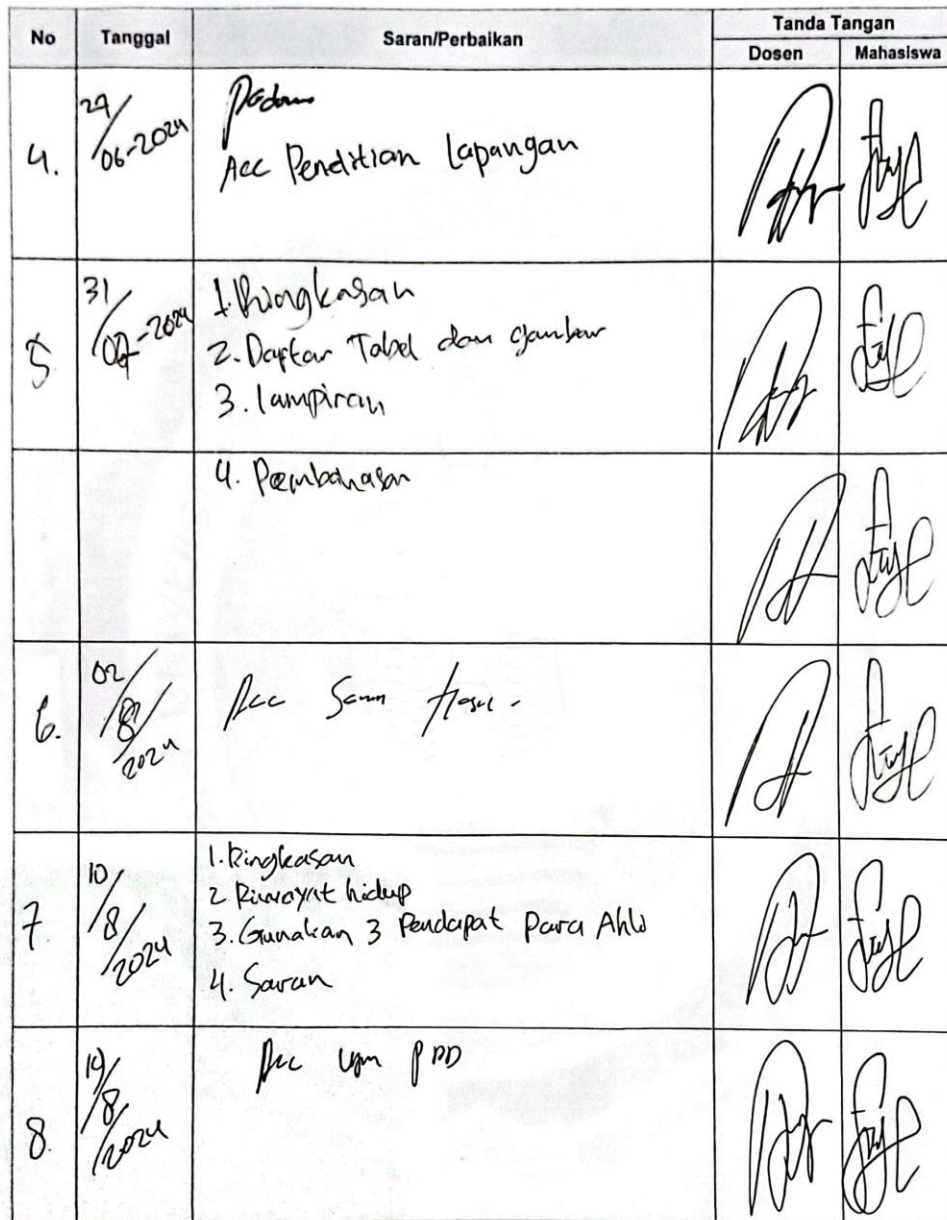 No Tanggal Saran/Perbaikan Tanda Tangan
Dosen Mahasiswa
4. 06-2024
Acc Penelitian Lapangan
5. 31/ -2024 1. Ringkasan
2. Daftar Tabel dan gambar
3. lampiran
4. Pembahasan
6. 02/8/2024 Acc
7 10/8/2024 1. Ringkasan
2. Riwayat hidup
3. Gunakan 3 Pendapat Para Ahli
4. Saran
8. /8/2024 Acc